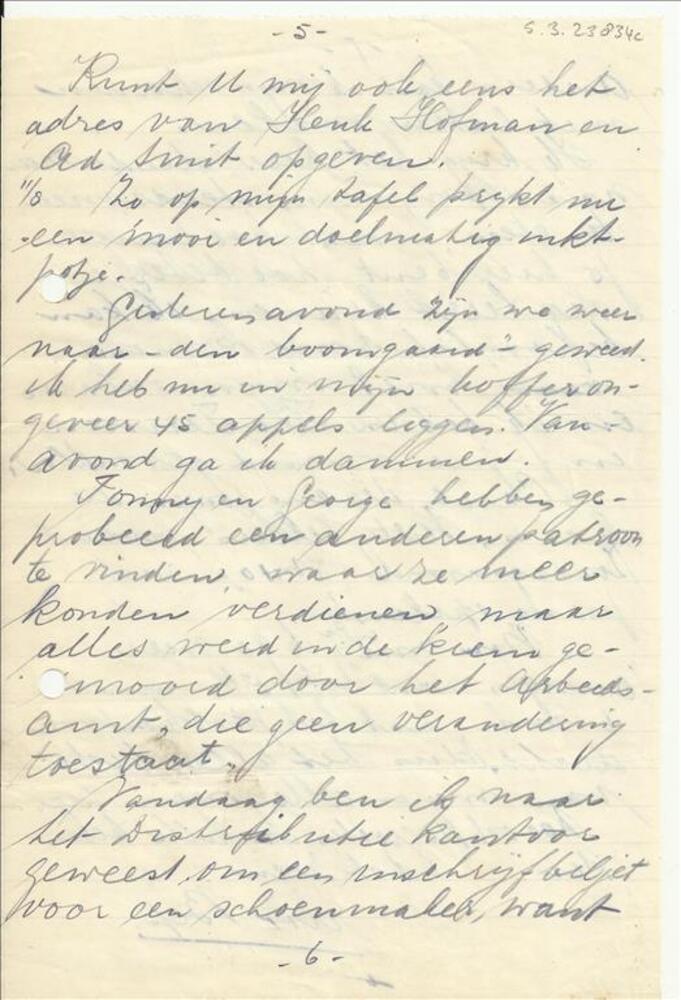 -5-
S.3.23834c
Kunt U mij ook eens het
adres van Henk Hofman en
Ad Smit opgeven.
11/8 Zo op mijn tafel prijkt nu
een mooi en doelmatig inkt-
potje.
Gisterenavond zijn we weer
naar "den boomgaard" geweest.
Ik heb nu in mijn koffer on-
geveer 45 appels liggen. Van-
avond ga ik dammen.
Tonny en George hebben ge-
probeerd een anderen patroon
te vinden, waar ze meer
konden verdienen, maar
alles werd in de kiem ge-
smoord door het Arbeids-
amt, die geen verandering
toestaat.
Vandaag ben ik naar
het Distributie kantoor
geweest om een inschrijfbiljet
voor een schoenmaker, want
-6-